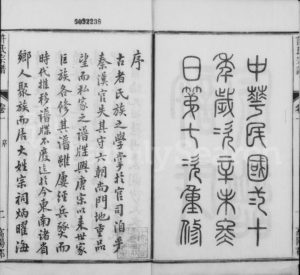 5032235
中華民國弍十
季歲次辛未冬
日第七次重修
序
古者氏族之學掌於官司洎乎
秦漢官失其守六朝尚門地重品
望而私家之譜牒興唐宋以來世家
巨族各修其譜雖屢經兵燹而
時代推移譜牒不廢迄於今東南諸省
鄉人聚族而居大姓宗祠炳曜海
氏宗譜
卷
序
一